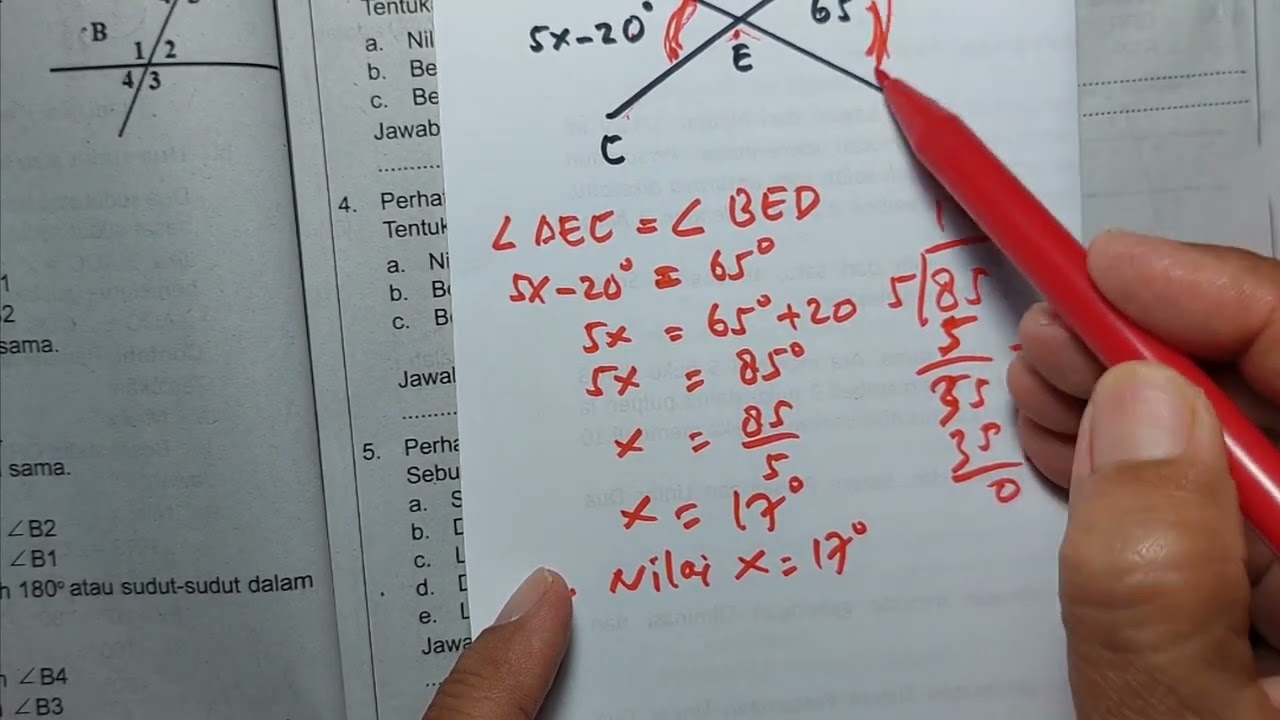 B
1 2
4 3
1
2
sama.
sama.
∠B2
∠B1
180° atau sudut-sudut dalam
∠B4
∠B3
Tentuk
a. Nil
b. Be
c. Be
Jawab
4. Perha
Tentuk
a. Ni
b. Be
c. B
Jawal
5. Perha
Sebu
a. S
b. D
c. L
d. D
e. L
Jawa
5x-20°
65
E
C
∠AEC = ∠BED
5x-20° = 65°
5x = 65°+20
5x = 85°
x = 85
5
x = 17°
Nilai x = 17°
1
5 85
5
35
35
0